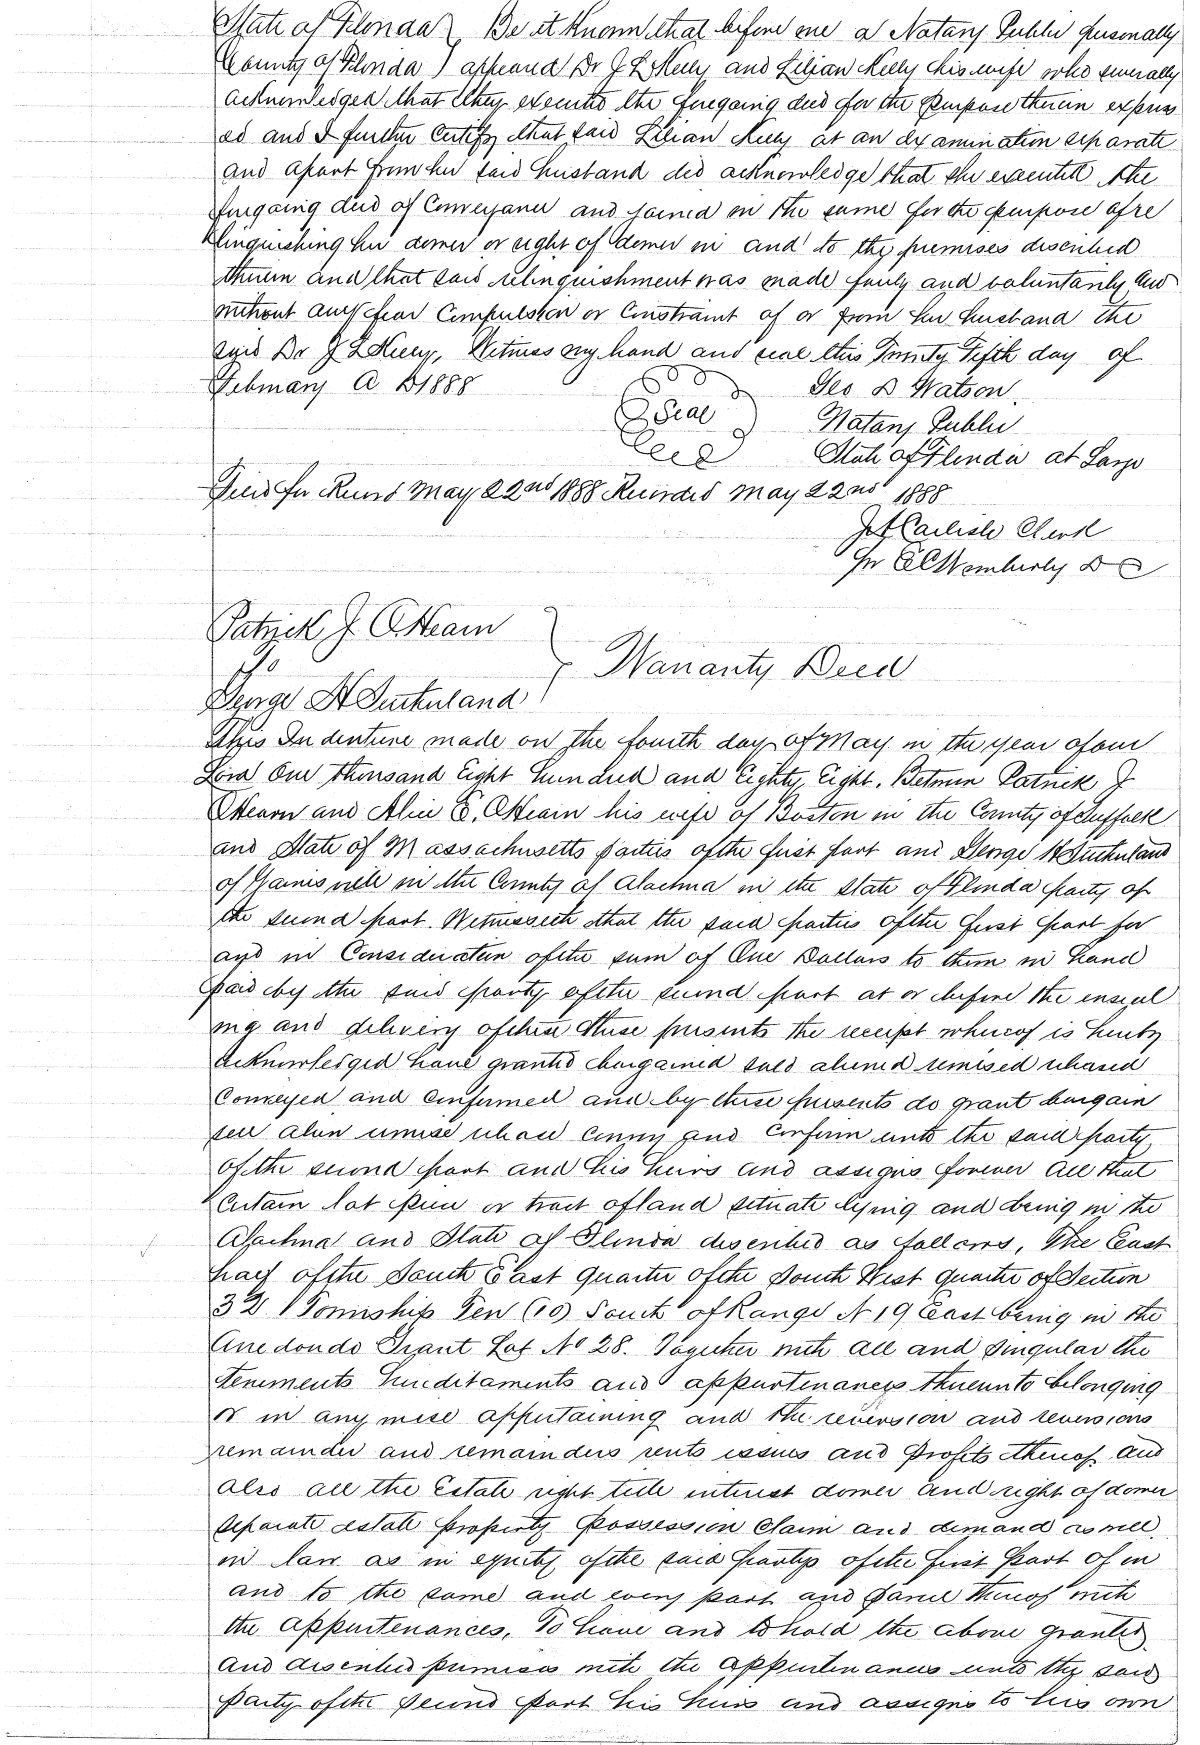 State of Florida } Be it Known that before me a Notary Public personally
County of Florida } appeared Dr J L Kelly and Lilian Kelly his wife who severally
acknowledged that they executed the foregoing deed for the purpose therein express
ed and I further Certify that said Lilian Kelly at an examination separate
and apart from her said husband did acknowledge that she executed the
foregoing deed of Conveyance and joined in the same for the purpose of re
linquishing her dower or right of dower in and to the premises described
therein and that said relinquishment was made freely and voluntarily and
without any fear Compulsion or Constraint of or from her husband the
said Dr J L Kelly, Witness my hand and seal this Twenty Fifth day of
February A D 1888
Geo D Watson
Seal
Notary Public
State of Florida at Large
Filed for Record May 22nd 1888 Recorded May 22nd 1888
Carlisle Clerk
Wemberly D C
Patrick J. O'Hearn
To
Warranty Deed
George H Sutherland
This Indenture made on the fourth day of May in the year of our
Lord One thousand Eight hundred and Eighty Eight. Between Patrick J
O'Hearn and Alice E. O'Hearn his wife of Boston in the County of Suffolk
and State of Massachusetts parties of the first part and George H Sutherland
of Gainesville in the County of Alachua in the state of Florida party of
the second part. Witnesseth that the said parties of the first part for
and in Consideration of the sum of One Dollars to them in hand
paid by the said party of the second part at or before the enseal
ing and delivery of these these presents the receipt whereof is hereby
acknowledged have granted bargained sold aliened remised released
Conveyed and confirmed and by these presents do grant bargain
sell alien remise release convey and confirm unto the said party
of the second part and his heirs and assigns forever all that
Certain lot piece or tract of land situate lying and being in the
Alachua and State of Florida described as follows, The East
half of the South East quarter of the South West quarter of Section
32 Township Ten (10) South of Range N 19 East being in the
Arredondo Grant Lot No 28. Together with all and singular the
tenements hereditaments and appurtenances thereunto belonging
or in any wise appertaining and the reversion and reversions
remainder and remainders rents issues and profits thereof and
also all the Estate right title interest dower and right of dower
separate estate property possession claim and demand as well
in law as in equity of the said partys of the first part of in
and to the same and every part and parcel thereof with
the appurtenances, To have and to hold the above granted
and described premises with the appurtenances unto the said
party of the second part his heirs and assigns to his own